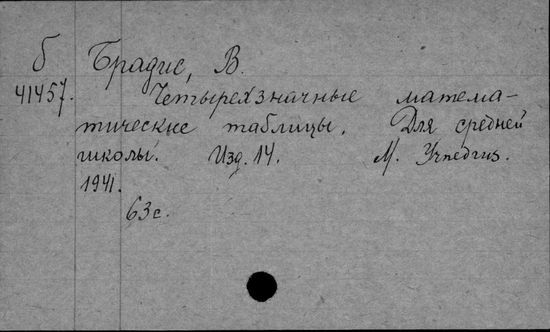 б Брадис, В.
41457. Четырехзначные матема-
тические таблицы. Для средней
школы. Изд. 14. М. Учпедгиз.
1941.
63с.